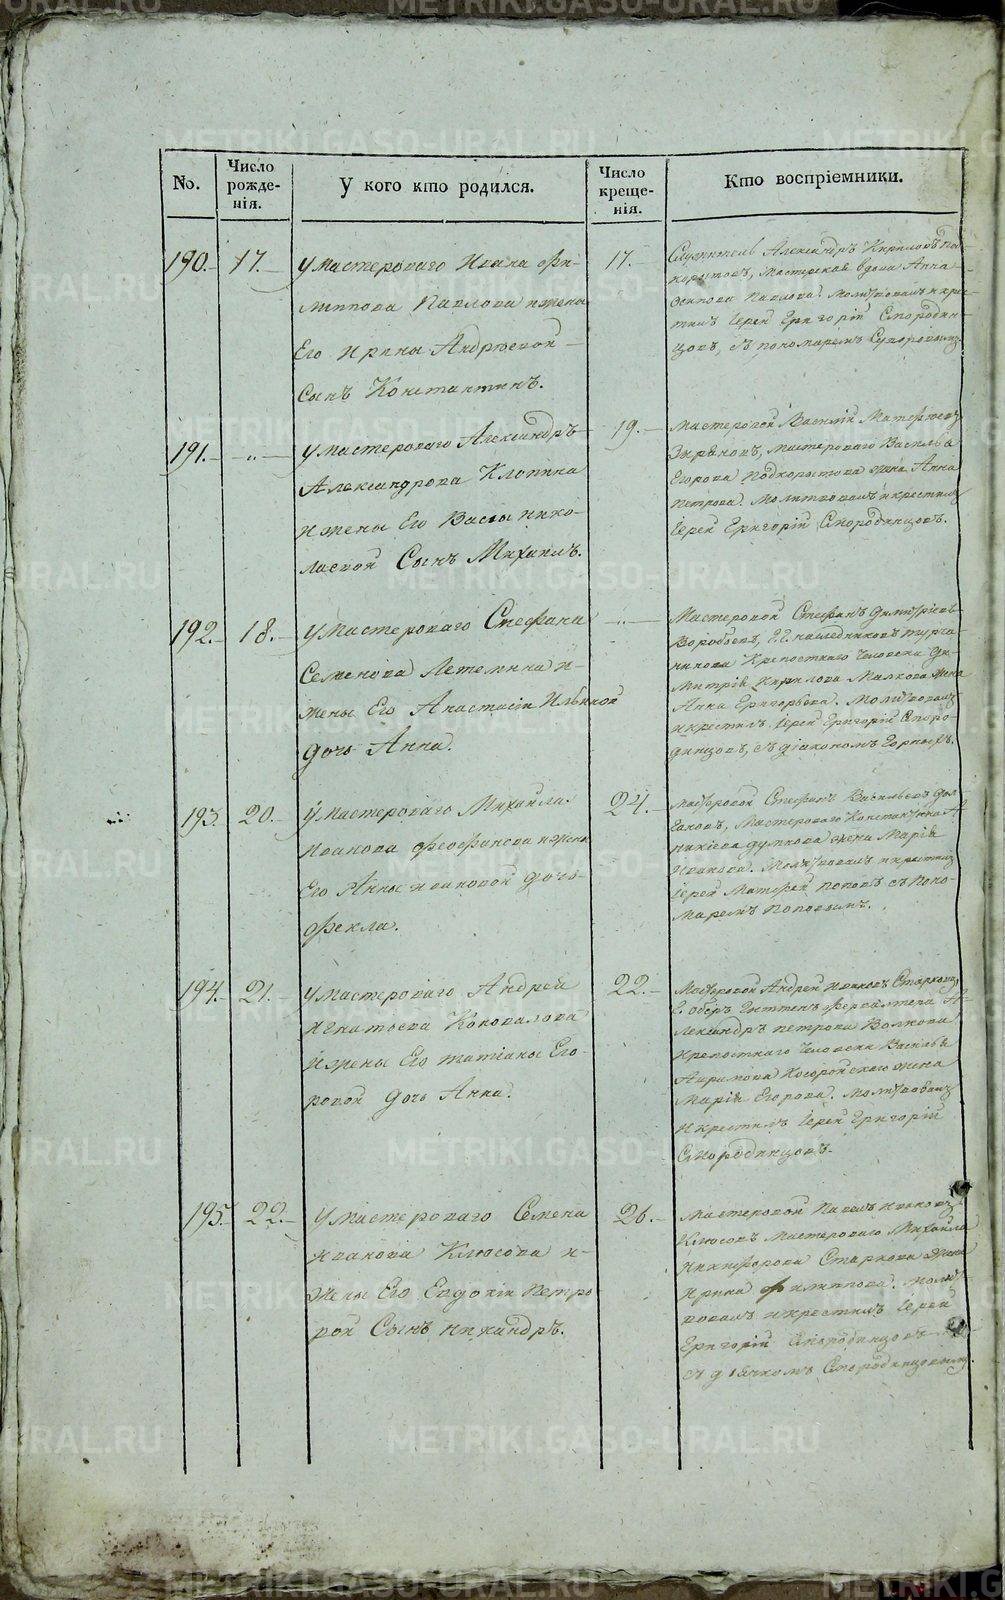 No.
Число рожде-нія.
У кого кто родился.
Число креще-нія.
Кто воспріемники.
190. 17.
У мастероваго Ивана Фи-
липпова Павлова и жены
Его Ирины Андреевой
Сынъ Константинъ.
17.
Служитель Александръ Кириловъ По-
коростовъ, Мастерская вдова Анна
Осипова Павлова. Молитвовалъ и крес-
тилъ Іерей Григорій Смородин-
цовъ, съ пономаремъ Суворовымъ
191. -"-
У мастероваго Александръ
Александрова Клопина
и жены Его Васы Нико-
лаевой Сынъ Михаилъ.
19.
Мастеровой Василій Матфеевъ
Зыряновъ, мастероваго Василья
Егорова Подкорытова жена Анна
Петрова. Молитвовалъ и крестилъ
Іерей Григорій Смородинцовъ.
192. 18.
У Мастероваго Стефана
Семенова Летемина и
жены Его Анастасіи Ильиной
дочь Анна.
-"-
Мастеровой Стефанъ Димитріевъ
Воробьевъ, Г.Г. наследниковъ Турча-
нинова Крепостнаго человека Ди-
митрія Кирилова Малкова жена
Анна Григорьева. Молитвовалъ
и крестилъ Іерей Григорій Сморо-
динцовъ, съ діакономъ Горныхъ.
193. 20.
У Мастероваго Михайла
Иванова Феофанова и жены
Его Анны Ивановой дочь
Фекла.
24.
Мастеровой Стефанъ Васильевъ Дол-
гановъ, Мастероваго Константина А-
никіева Думнова жена Марія
Иванова. Молитвовалъ и крестилъ
Іерей Матфей Поповъ съ Поно-
маремъ Поповымъ.
194. 21.
У Мастероваго Андрей
Игнатьева Коновалова
и жены Его Татіаны Его-
ровой дочь Анна.
22.
Мастеровой Андрей Ивановъ Старковъ,
Александръ Петрова Волкова
Крепостнаго Человека Василья
жена
Марія Егорова. Молитвовалъ
и крестилъ Іерей Григорій
Смородинцовъ.
195. 22.
У Мастероваго Семена
Иванова Клюсова и
жены Его Евдокіи Петро
вой Сынъ Никандръ.
26.
Мастеровой Павелъ Ивановъ
Клюсовъ Мастероваго Михайла
Никифорова Старкова жена
Ирина Филипова. Молит
вовалъ и крестилъ Іерей
Григорій Смородинцовъ
съ дьячкомъ Смородинцовымъ.
METRIKI.GASO-URAL.RU